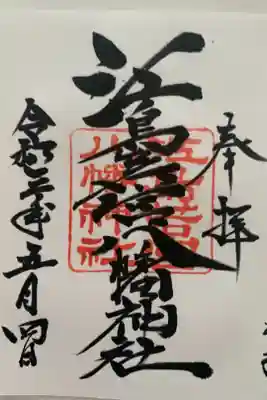 奉拝
江島若宮八幡神社
江島若宮
八幡神社
令和三年五月四日